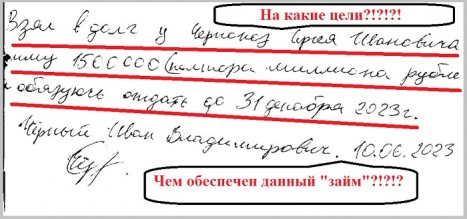 На какие цели?!?!?!
Взял в долг у Черноноз Ивановича
1500000 (полтора миллиона рубле
обязуюсь отдать до 31 декабря 2023г.
Чёрный Иван Владимирович. 10.06.2023
Чем обеспечен данный "займ"?!?!?